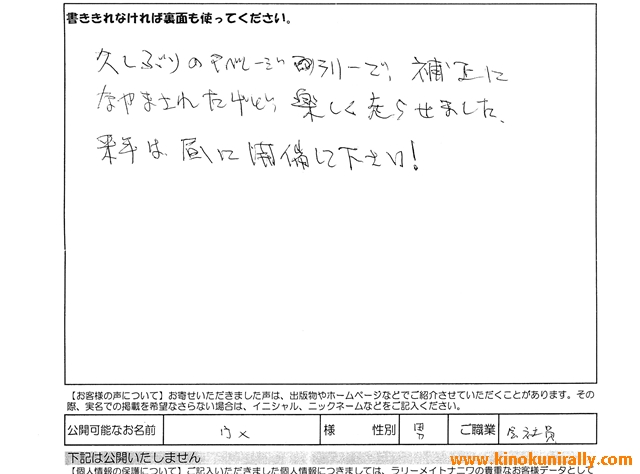 書ききれなければ裏面も使ってください。
久しぶりのアベレージラリーで、補正に
なやまされたけど、楽しく走らせました。
来年は、昼に開催して下さい!
【お客様の声について】お寄せいただきました声は、出版物やホームページなどでご紹介させていただくことがあります。その
際、実名での掲載を希望なさらない場合は、イニシャル、ニックネームなどをご記入ください。
公開可能なお名前 様 性別 男 ご職業 会社員
下記は公開いたしません
www.kinokunirally.com
【個人情報の保護について】ご記入いただきました個人情報につきましては、ラリーメイトナニワの貴重なお客様データとして